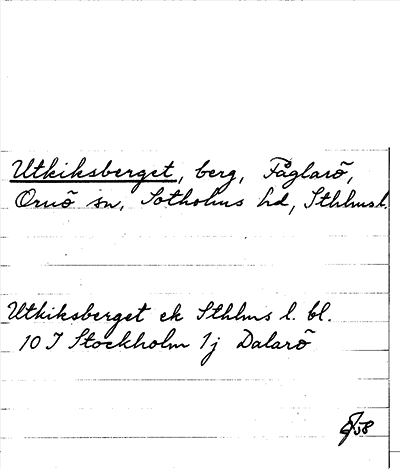 Utkiksberget, berg, Fåglarö,
Ornö sn, Sotholms hd, Sthlms l.
Utkiksberget ek Sthlms l. bl.
10 I Stockholm 1j Dalarö
58